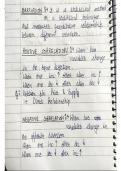 CORRELATION :- It is a statistical method
or a statistical technique
that measures quantitative relationship
between different variables.
POSITIVE CORRELATION :- When two
variables change
in the same direction.
When one inc ↑ other also inc ↑
When one dec ↓ other also dec ↓
Eg Relation b/w Price & Supply
is Direct Relationship
NEGATIVE CORRELATION :- When two
variables change in
the opposite direction.
When one inc ↑ other dec ↓
When one dec ↓ other inc ↑